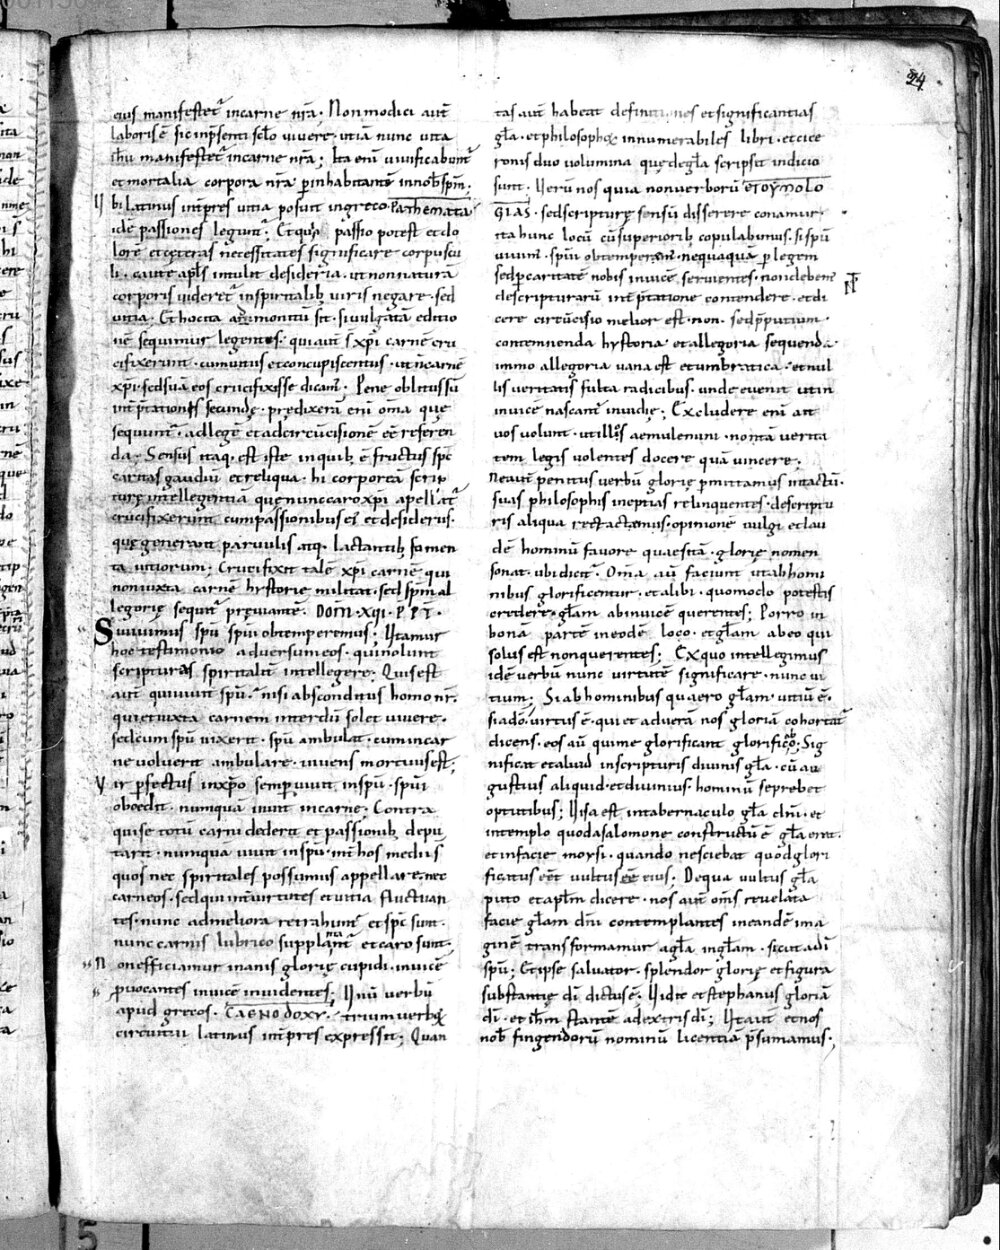 24
eius manifestet̄ incarne nr̄a. Nonmodici aut̄
laboris ē sic inp̄senti sc̄lo vivere. utiā nunc uita
ih̄u manifestet̄ incarne nr̄a; Ita enī uiuificabunt̄
et mortalia corpora nr̄a p̄inhabitantē innob̄ sp̄m;
Ubi latinus int̄pres uitia posuit ingreco. Pathemata
idē passiones legunt̄; Et quia passio potest et do
lorē et cęteras necessitates significare corpuscu
li. caute apl̄s intulit desideria. ut non naturā
corporis uideret̄ inspiritalib; uiris negare. sed
uitia. Et hoc ita ammonitū sit. si uulgatā editio
nē sequimur legentes. qui aut̄ s̄ xp̄i carnē cru
cifixerunt. cum uitiis et concupiscentiis. ut n̄ carnē
xp̄i. sed suā eos crucifixisse dicam̄. Pene oblitus sū
int̄p̄tationis secundę. predixerā enī om̄a quę
sequunt̄. ad legē et ad circūcisionē eē referen
da. Sensus itaq; est iste inquib; ē fructus sp̄c
caritas gaudiū et reliqua. hi corporeā scrip
turę intellegentiā quę nunc caro xp̄i apellat̄
crucifixerunt cum passionibus ei et desideriis.
quę generant paruulis atq; lactantib; fomen
ta uitiorum; Crucifixit talē xp̄i carnē. qui
non iuxta carnē hystorię militat. sed sp̄m al
legorię sequit̄ pręuiantē. DOM. XIII. P. PT.
Si uiuimus sp̄u sp̄ui obtemperemus; Utamur
hoc testimonio aduersum eos. qui nolunt
scripturas spiritalit̄ intellegere; Quis est
aut̄ qui uiuit sp̄u. nisi absconditus homo nr̄.
qui et iuxta carnem interdū solet uiuere.
sed cum sp̄u uixerit. sp̄u ambulat. cum in car
ne voluerit ambulare. uiuens mortuus est;
Vir p̄fectus inxp̄o semp̄ uiuit insp̄u. sp̄ui
oboedit. numquā uiuit incarne; Contra
qui se totū carni dederit et passionib; depu
tarit. numquā uiuit insp̄u. int̄ hos medius
quos nec spiritales possumus appellare. nec
carneos. sed qui int̄ uirtutes et uitia fluctuan
tes. nunc ad meliora retrahunt̄ et sp̄c sunt.
nunc carnis lubrico supplantant̄ et caro sunt.
Non efficiamur inanis glorię cupidi. inuicē
ꝓuocantes inuicē inuidentes; Unū uerbū
apud grecos. CAENODOXY. trium uerborū
circuitu latinus int̄pres expressit; Quan
tas aut̄ habeat definitiones et significantias
gl̄a. et philosophorū innumerabiles libri. et cice
ronis duo uolumina quę de gl̄a scripsit indicio
sunt. Uerū nos quia non uerborū ETOYMOLO
GIAS. sed scripturę sensū disserere conamur.
ita hunc locū cū superiorib; copulabimus. si sp̄u
uiuim̄. sp̄ui obtemperam̄. nequaquā p̄ legem
sed p̄ caritatē nobis inuicē seruientes. non debem̄
de scripturarū int̄p̄tatione contendere. et di
cere circūcisio melior est. non. sed p̄putium.
contemnenda hystoria et allegoria sequenda.
immo allegoria uana est et umbratica. et nul
lis ueritatis fulta radicibus. unde euenit ut in
inuicē nascant̄ inuidię; Excludere enī ait
uos uolunt. ut illos aemulemini. non tā uerita
tem legis uolentes docere quā uincere;
Ne aut̄ penitus uerbū glorię p̄mittamus intactū.
suas philosophis ineptias relinquentes. de scriptu
ris aliqua retractamus. opinionē uulgi et lau
dē hominū fauore quaesitā. glorię nomen
sonat. ubi dicit̄. Om̄a aū faciunt ut ab homi
nibus glorificentur. et alibi. quomodo potestis
credere. gl̄am abinuicē querentes; Porro in
bonā partē in eodē loco. et gl̄am ab eo qui
solus est non querentes; Ex quo intellegimus
idē uerbū nunc uirtutē significare. nunc ui
tium; Si ab hominibus quaero gl̄am. uitiū ē.
si a dō. uirtus ē. qui et ad uerā nos gloriā cohortat̄
dicens. eos aū qui me glorificant glorificabo; Sig
nificat et aliud in scripturis diuinis gl̄a. cū au
gustius aliquid et diuinius. hominū se prebet
optutibus; Uisa est in tabernaculo gl̄a dn̄i. et
in templo quod a salomone constructū ē gl̄a erat.
et in facie moysi. quando nesciebat quod glori
ficatus eēt uultus eius. De qua uultus gl̄a
puto et apl̄m dicere. nos aut̄ om̄s reuelata
facie gl̄am dn̄i contemplantes in eandē ima
ginē transformamur a gl̄a in gl̄am. sicut a dn̄i
sp̄u; Et ipse saluator. splendor glorię et figura
substantię dī dictus ē. Uidit et stephanus gloriā
dī. et ih̄m stantē ad extris dī; Ut aut̄ et nos
nob̄ fingendorū nominū licentiā p̄sumamus;